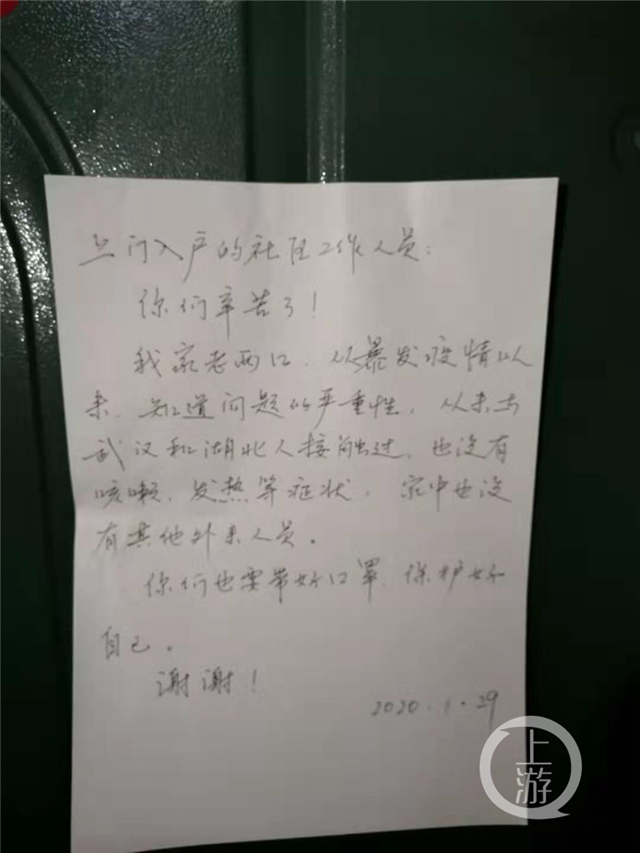 上门入户的社区工作人员：
你们辛苦了！
我家老两口，从暴发疫情以
来，知道问题的严重性，从未与
武汉和湖北人接触过，也没有
咳嗽，发热等症状，家中也没
有其他外来人员。
你们也要带好口罩，保护好
自己。
谢谢！
2020.1.29
上游